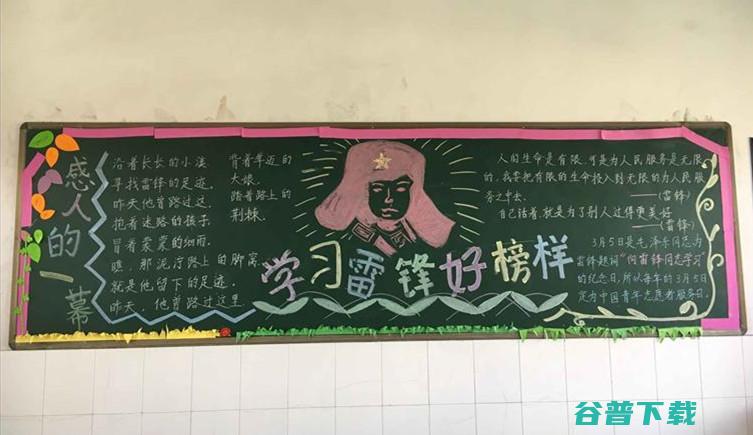 感人的一幕
沿着长长的小溪
寻找雷锋的足迹。
昨天他曾路过这,
抱着迷路的孩子,
冒着蒙蒙的细雨。
瞧,那泥泞路上的脚窝,
就是他留下的足迹。
昨天,他曾路过这里.
背着年迈的
大娘.
踏着路上的
荆棘.
学习雷锋好榜样
人的生命是有限,可是为人民服务是无限
的,我要把有限的生命投入到无限的为人民服
务之中去.
——(雷锋)
自己活着,就是为了别人过得更美好
——(雷锋)
3月5日是毛泽东同志为
雷锋题词“向雷锋同志学习”
的纪念日,所以每年的3月5日
定为中国青年志愿者服务日.
谷普下载